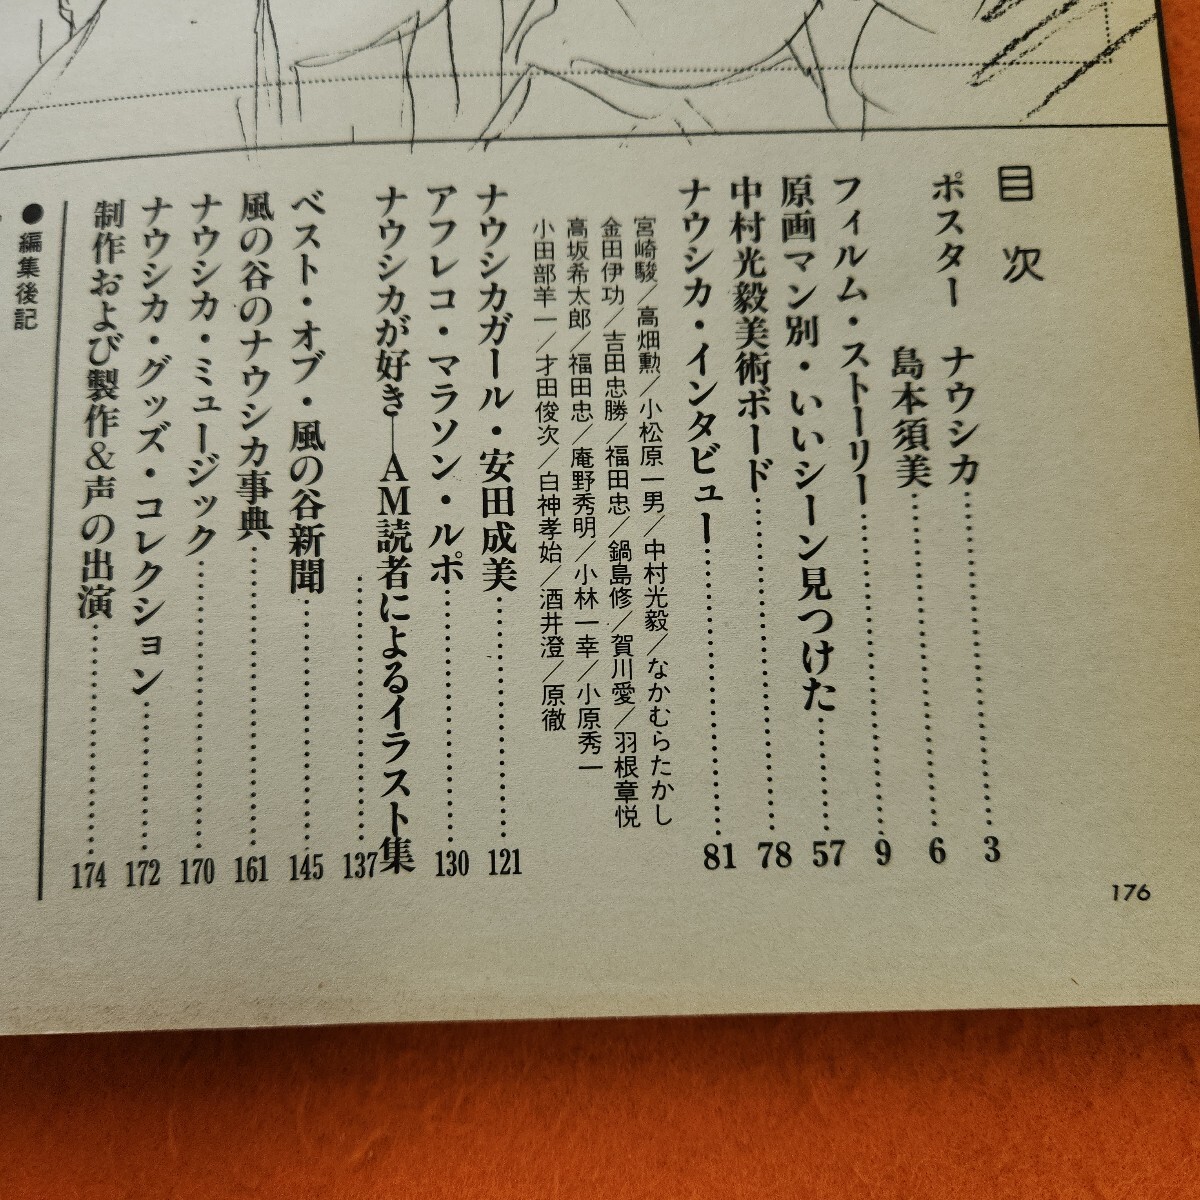 目次
ポスター ナウシカ……3
島本須美……6
フィルム・ストーリー……9
原画マン別・いいシーン見つけた……57
中村光毅美術ボード……78
ナウシカ・インタビュー……81
宮崎駿/高畑勲/小松原一男/中村光毅/なかむらたかし
金田伊功/吉田忠勝/福田忠/鍋島修/賀川愛/羽根章悦
高坂希太郎/福田忠/庵野秀明/小林一幸/小原秀一
小田部羊一/才田俊次/白神孝始/酒井澄/原徹
ナウシカガール・安田成美……121
アフレコ・マラソン・ルポ……130
ナウシカが好き—AM読者によるイラスト集
……137
ベスト・オブ・風の谷新聞……145
風の谷のナウシカ事典……161
ナウシカ・ミュージック……170
ナウシカ・グッズ・コレクション……172
制作および製作&声の出演……174
●編集後記
176